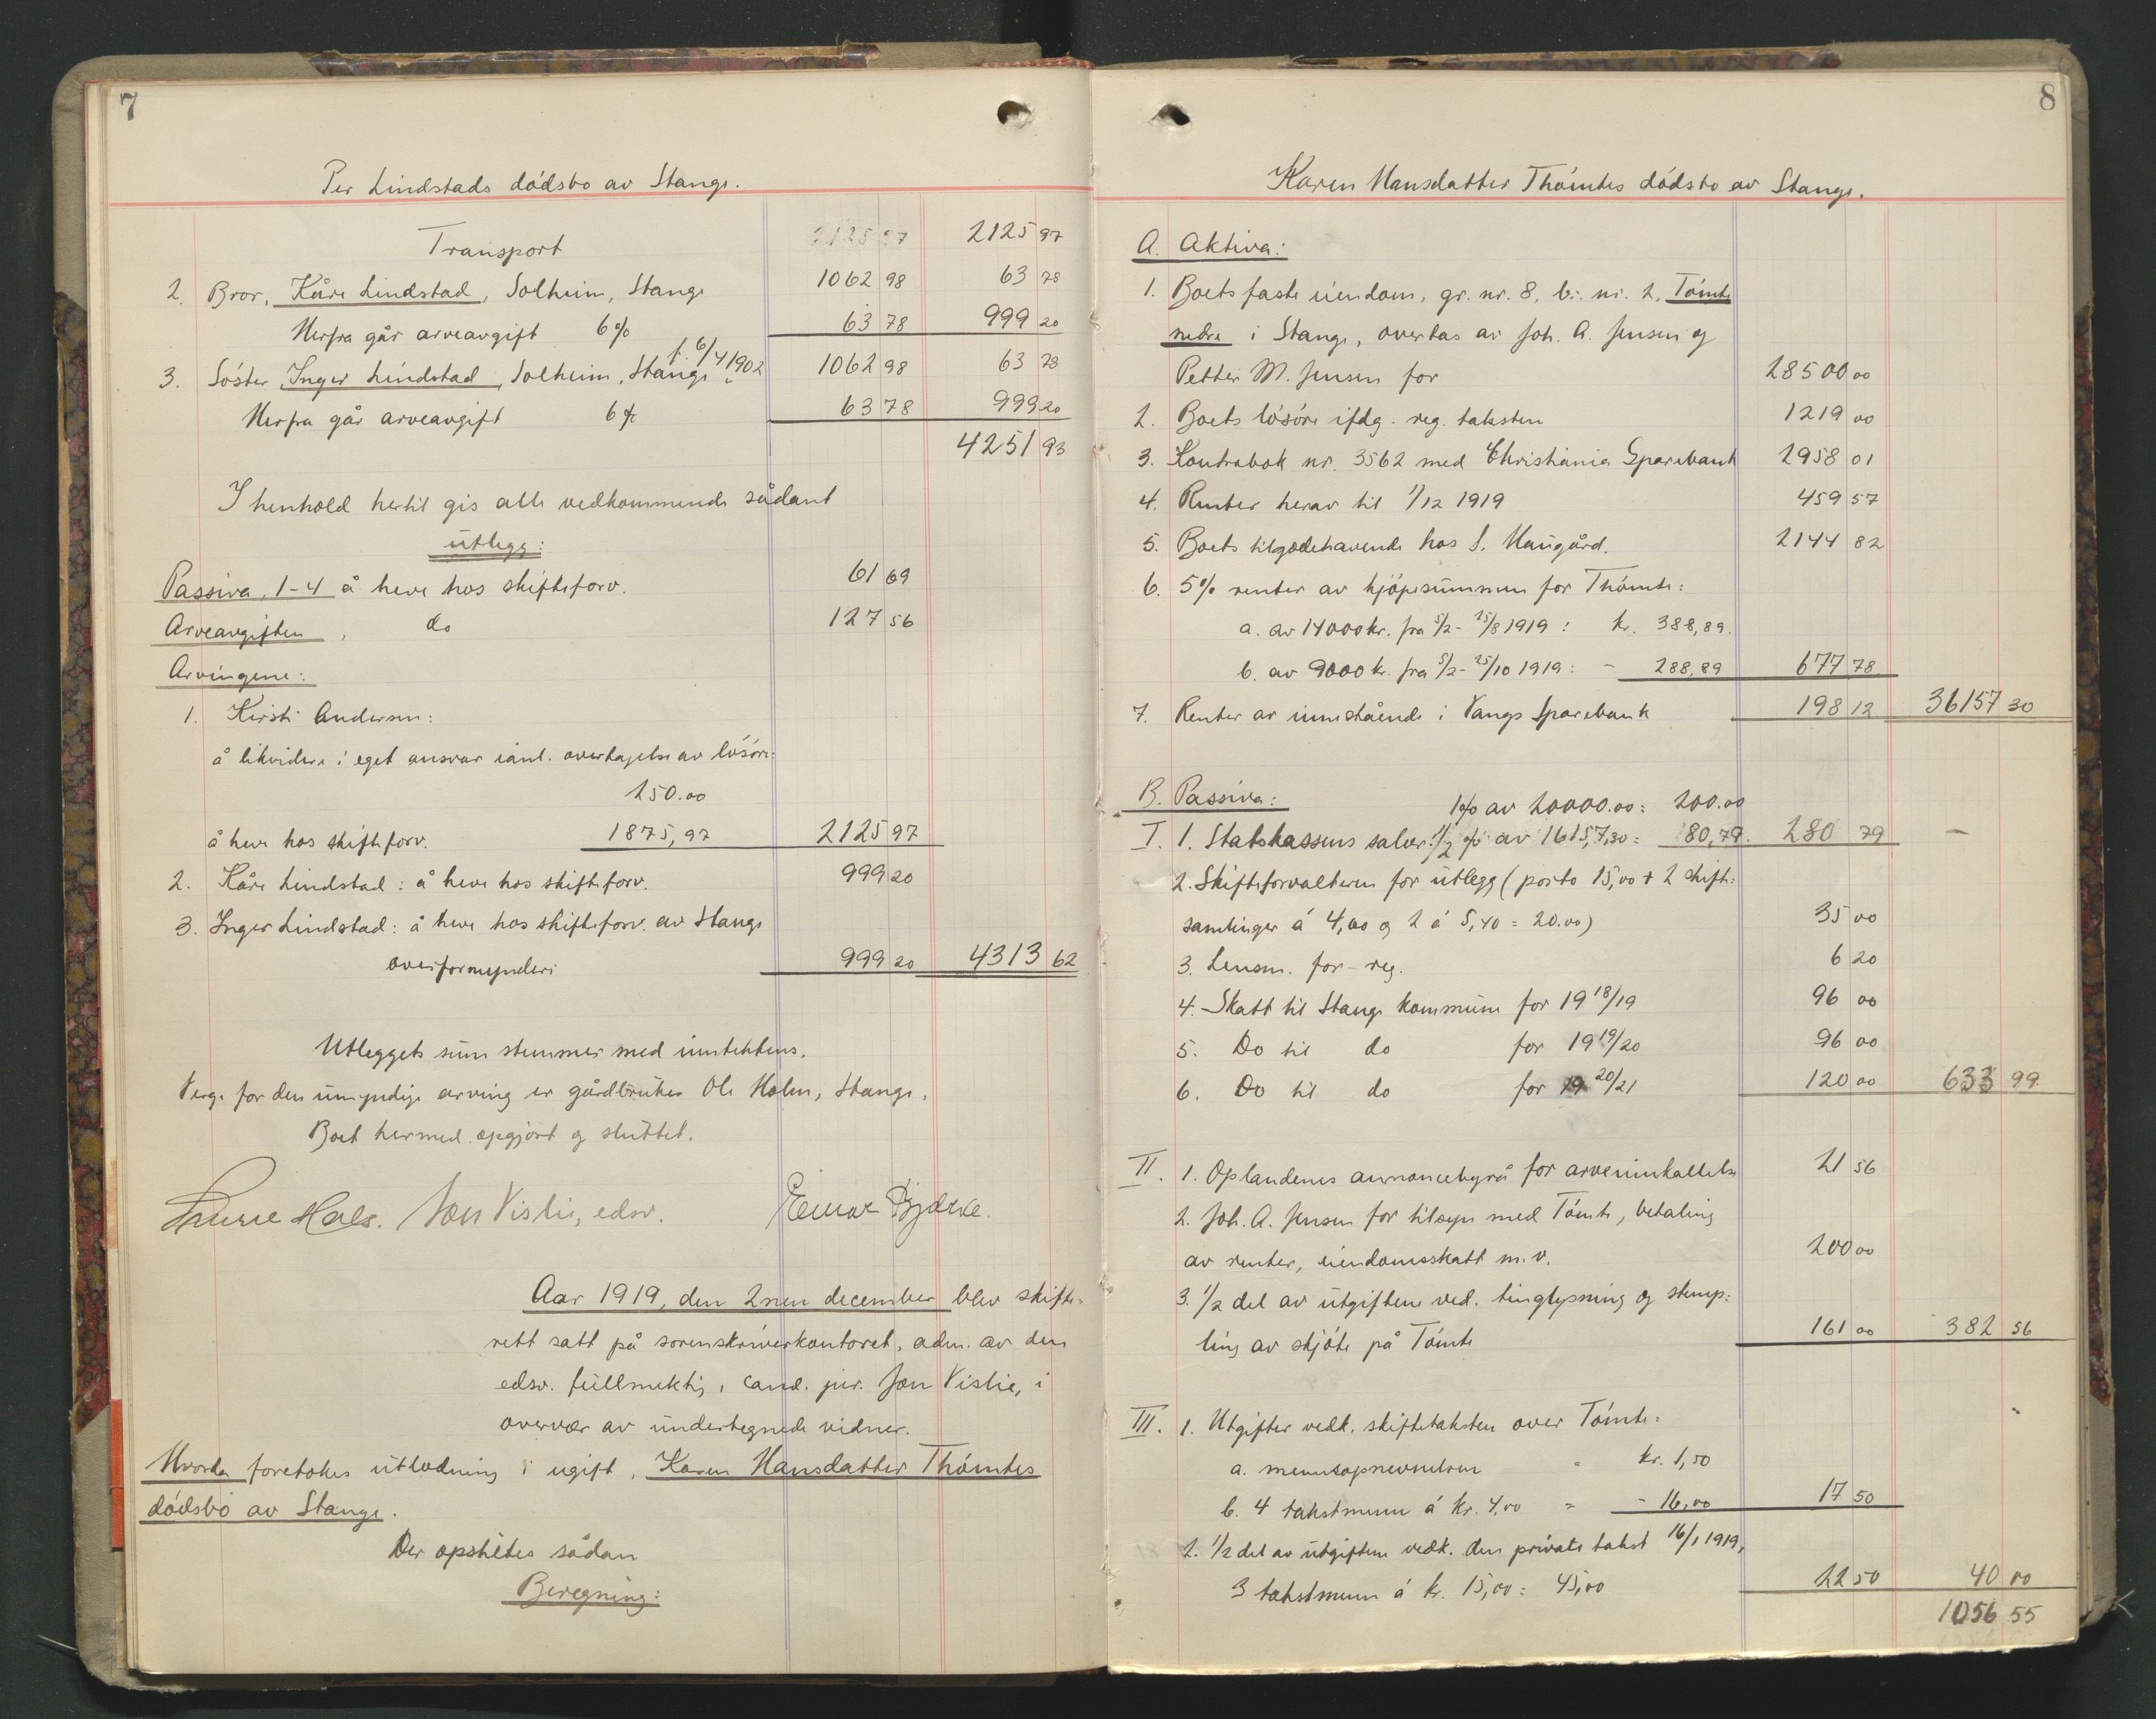 7
Per Lindstads dödsbo av Stange.
Transport 2125 97 2125 97
2. Bror, Kåre Lindstad, Solheim, Stange 1062 98 63 78
Herfra går arveavgift 6% 63 78 999 20
f. 6/4 1902
3. Söster, Inger Lindstad, Solheim, Stange 1062 98 63 78
Herfra går arveavgift 6% 63 78 999 20
4251 93
I henhold hertil gis alle vedkommende sådant
utlegg:
Passiva, 1-4 å heve hos skifteforv. 61 69
Arveavgiften, do 127 56
Arvingene:
1. Kirsti Andersen:
å likvidere i eget ansvar ianl. overtagelse av lösöre:
250.00
å heve hos skifteforv. 1875,97 2125 97
2. Kåre Lindstad: å heve hos skifteforv. 999 20
3. Inger Lindstad: å heve hos skifteforv. av Stange
overformynderi 999 20 4313 62
Utleggets sum stemmer med inntektens.
Verge for den umyndige arving er gårdbruker Ole Holm, Stange.
Boet hermed opgjort og sluttet.
Jon Vislie, edsv. Einar
Aar 1919, den 2nen december blev skifte-
rett satt på sorenskriverkontoret, adm. av den
edsv. fullmektig, cand. jur. Jon Vislie, i
overvær av undertegnede vidner.
Hvorda foretokes utlodning i ugift, Karen Hansdatter Thömtes
dödsbo av Stange.
Der opstiltes sådan
Beregning:
8
Karen Hansdatter Thömtes dödsbo av Stange.
A. Aktiva:
1. Boets faste eiendom, gr. nr. 8, br. nr. 2, Tömte
nedre i Stange, overtas av Joh. A. Jensen og
Petter M. Jensen for 28500 00
2. Boets lösöre ifdg. reg. taksten 1219 00
3. Kontrabok nr. 3562 med Christiania Sparebank 2958 01
4. Renter herav til 1/12 1919 459 57
5. Boets tilgodehavende hos S. Haugård. 2144 82
6. 5% renter av kjöpesummen for Thömte:
a. av 14000 kr. fra 5/2 - 25/8 1919: kr. 388,89.
b. av 9000 kr. fra 5/2 - 25/10 1919: - 288,89 677 78
7. Renter av innestående i Vangs Sparebank 198 12 36157 30
B. Passiva: 1% av 20000.00 = 200.00
I. 1. Statskassens salær: 1/2 % av 16157,30 = 80,79. 280 79 -
2. Skifteforvalteren for utlegg (porto 15,00 + 2 skifte-
samlinger á 4,60 og 2 á 5,40 = 20.00) 35 00
3. Lensm. for - reg. 6 20
4. Skatt til Stange kommune for 19 18/19 96 00
5. Do til do for 19 19/20 96 00
6. Do til do for 19 20/21 120 00 633 99
II. 1. Oplandenes annoncebyrå for arveinnkallelse 21 56
2. Joh. A. Jensen for tilsyn med Tömte, betaling
av renter, eiendomsskatt m.v. 200 00
3. 1/2 del av utgiftene ved. tinglysning og stemp-
ling av skjöte på Tömte 161 00 382 56
III. 1. Utgifter vedk. skiftetaksten over Tömte:
a. mennsopnevnelsen = kr. 1,50
b. 4 takstmenn á kr. 4,00 = - 16,00 17 50
2. 1/2 del av utgiftene vedk. den private takst 16/1 1919,
3 takstmenn á kr. 15,00 = 45,00 22 50 40 00
1056 55